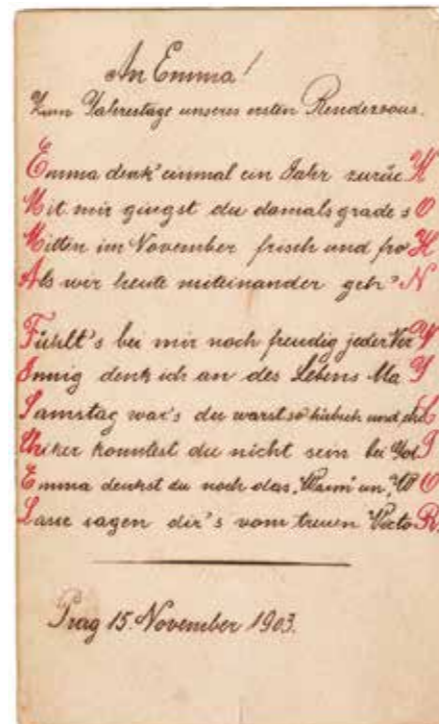 An Emma!
Zum Jahrestage unseres ersten Rendezvous.
Emma denk' einmal ein Jahr zurücK
Mit mir giengst du damals grade sO
Mitten im November frisch und froH
Als wir heute miteinander geh'N
Fühlt's bei mir noch freudig jeder
Innig denk ich an des Lebens MaY
Samstag war's du warst so hübsch und
konntest du nicht sein bei
Emma denkst du noch das „Wann“ un' „WO
Lasse sagen dir's vom treuen VictoR.
Prag 15. November 1903.